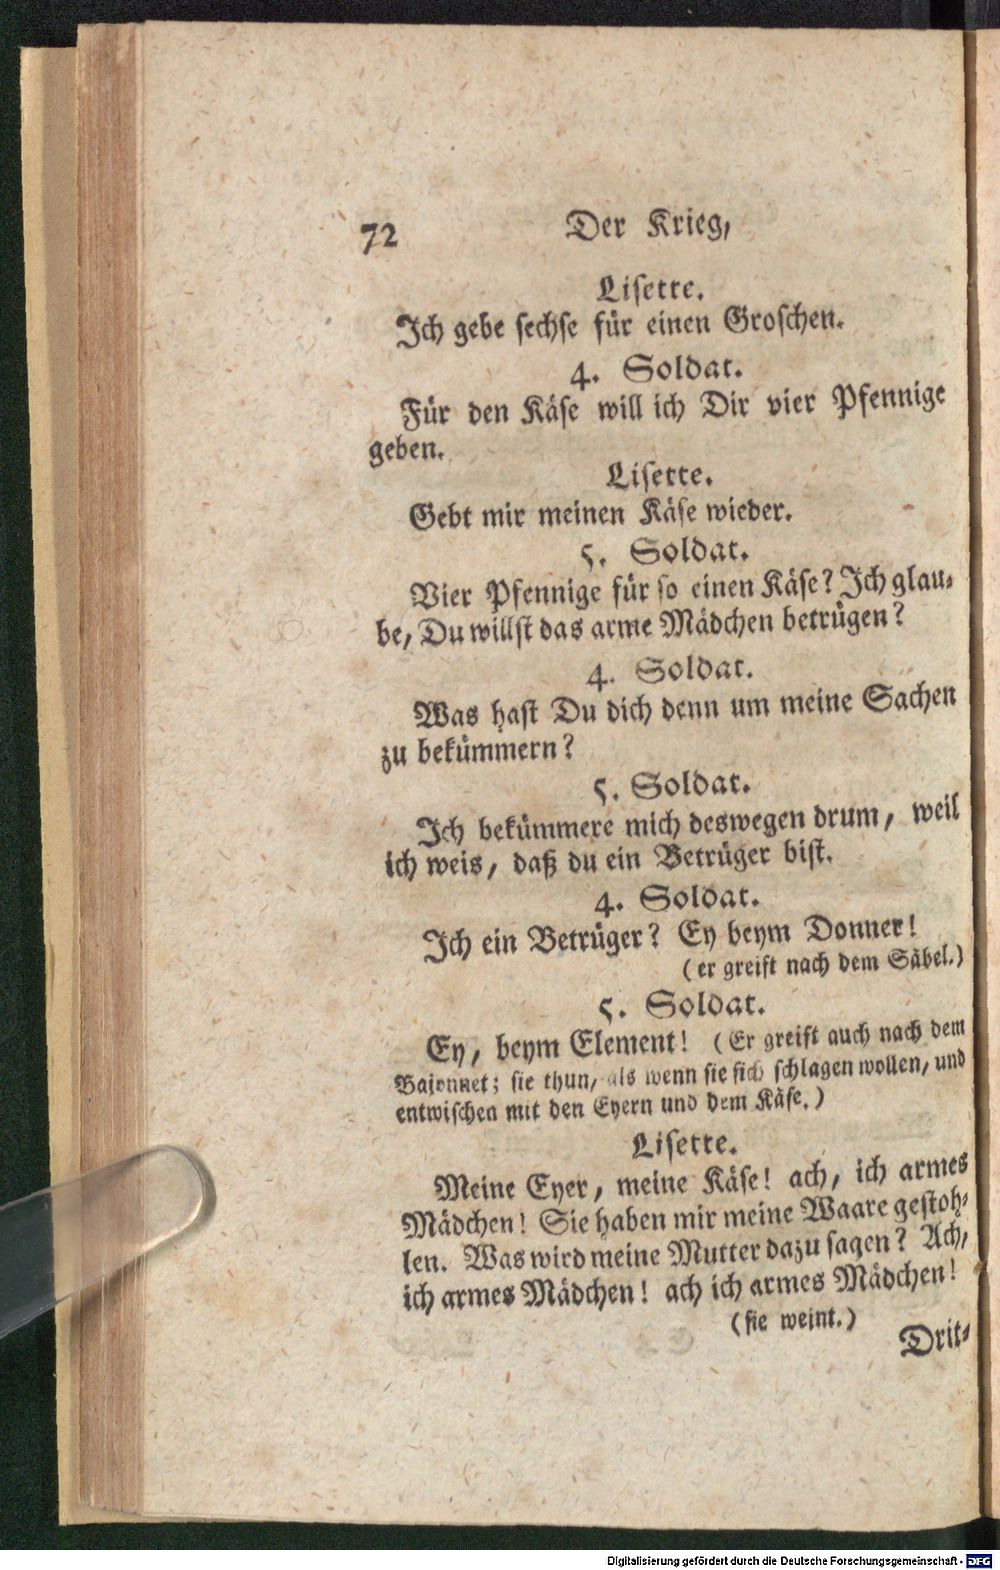 72 Der Krieg,
Lisette.
Ich gebe sechse für einen Groschen.
4. Soldat.
Für den Käse will ich Dir vier Pfennige
geben.
Lisette.
Gebt mir meinen Käse wieder.
5. Soldat.
Vier Pfennige für so einen Käse? Ich glau-
be, Du willst das arme Mädchen betrügen?
4. Soldat.
Was hast Du dich denn um meine Sachen
zu bekümmern?
5. Soldat.
Ich bekümmere mich deswegen drum, weil
ich weis, daß du ein Betrüger bist.
4. Soldat.
Ich ein Betrüger? Ey beym Donner!
(er greift nach dem Säbel.)
5. Soldat.
Ey, beym Element! (Er greift auch nach dem
Bajonnet; sie thun, als wenn sie sich schlagen wollen, und
entwischen mit den Eyern und dem Käse.)
Lisette.
Meine Eyer, meine Käse! ach, ich armes
Mädchen! Sie haben mir meine Waare gestoh-
len. Was wird meine Mutter dazu sagen? Ach,
ich armes Mädchen! ach ich armes Mädchen!
(sie weint.)
Drit-
Digitalisierung gefördert durch die Deutsche Forschungsgemeinschaft - DFG